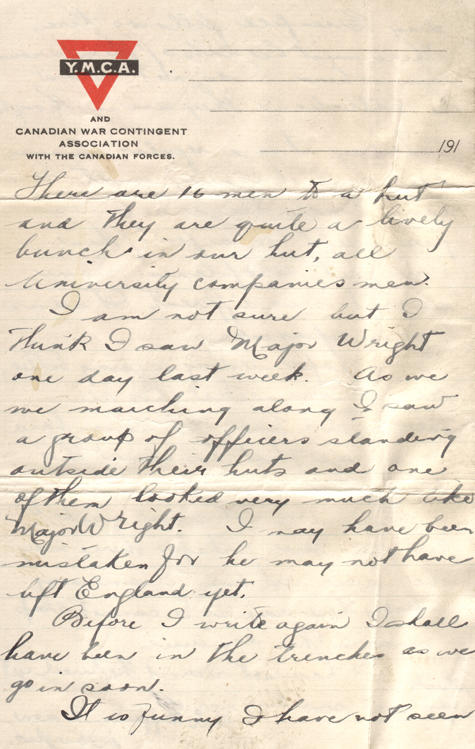 Y.M.C.A.
AND
CANADIAN WAR CONTINGENT
ASSOCIATION
WITH THE CANADIAN FORCES.
191
There are 16 men to a hut
and they are quite a lively
bunch in our hut, all
University companies men.
I am not sure but I
think I saw Major Wright
one day last week. As we
we marching along I saw
a group of officers standing
outside their huts and one
of them looked very much like
Major Wright. I may have been
mistaken for he may not have
left England yet.
Before I write again I shall
have been in the trenches as we
go in soon.
It is funny I have not seen